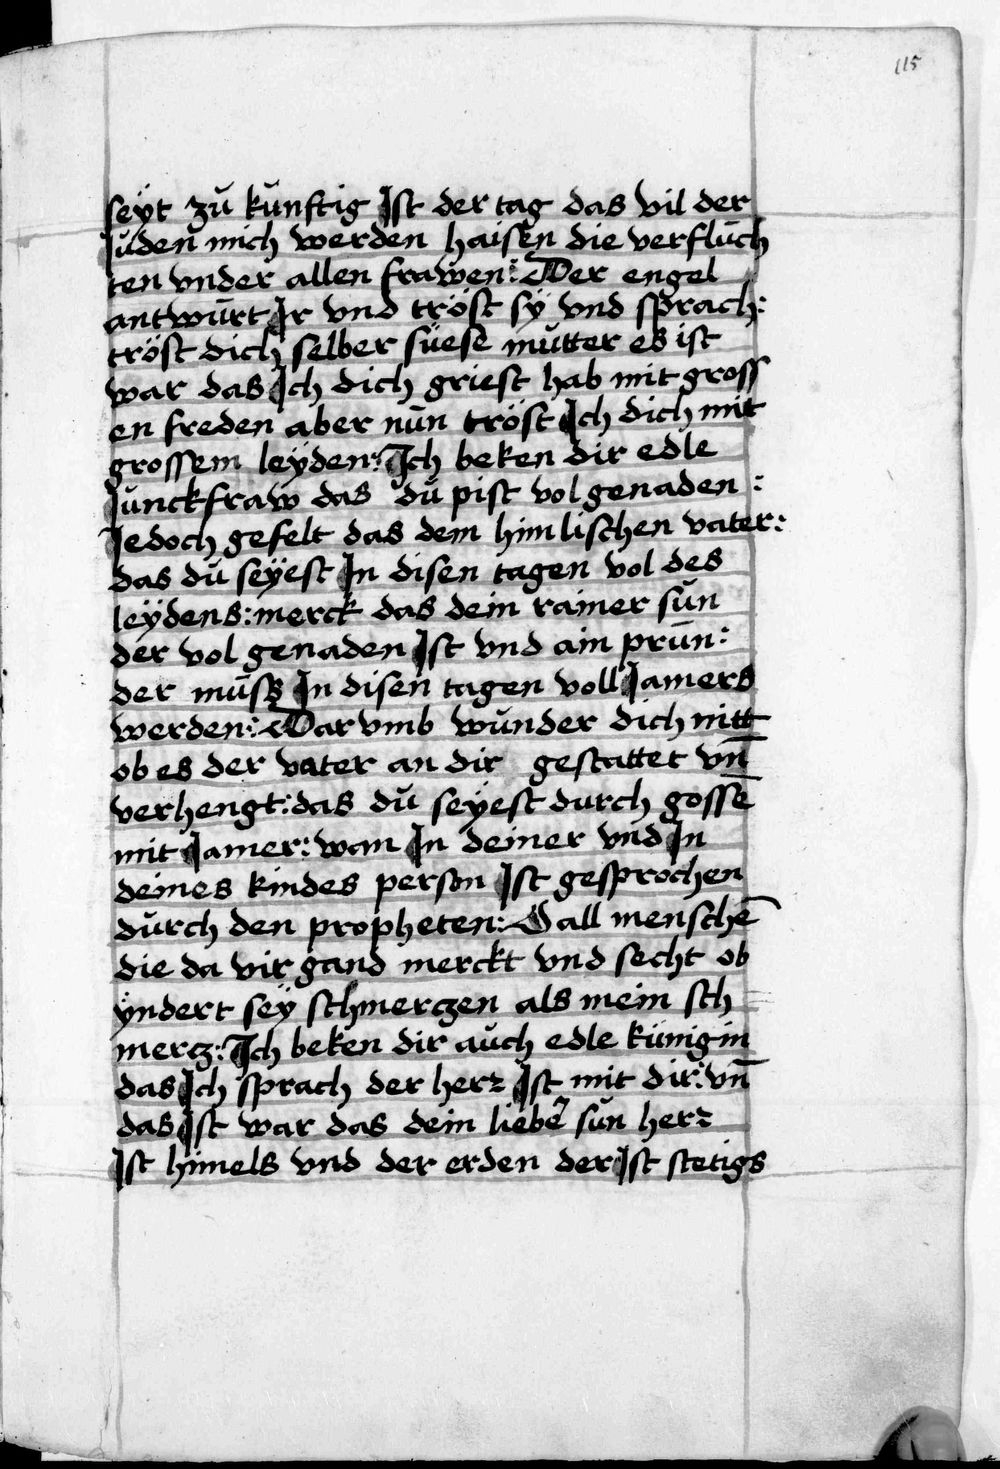 115
seÿt zů kűnftig Ist der tag das vil der
Juden mich werden haisen die verflůch
ten vnder allen frawen: Der engel
antwůrt Ir vnd tröst sÿ vnd sprach:
tröst dich selber süese můtter es ist
war das Ich dich griest hab mit gross
en freden aber nůn tröst Ich dich mit
grossem leÿden: Ich beken dir edle
Junckfraw das dů pist vol genaden:
Jedoch gefelt das dem himlischen vater:
das dů seÿest In disen tagen vol des
leÿdens: merck das dein rainer sůn
der vol genaden Ist vnd ain průn:
der můß In disen tagen voll Jamers
werden: Dar vmb wůnder dich nitt
ob es der vater an dir gestattet vn̄
verhengt: das dů seÿest durch gossē
mit Jamer: wan In deiner vnd In
deines kindes person Ist gesprochen
důrch den propheten: O all menschē
die da vir gand merckt vnd secht ob
ÿndert seÿ schmerczen als mein sch
mercz: Ich beken dir aůch edle künigin
das Ich sprach der herr Ist mit dir: vn̄
das Ist war das dein lieber sůn herr
Ist himels vnd der erden der Ist stetigs